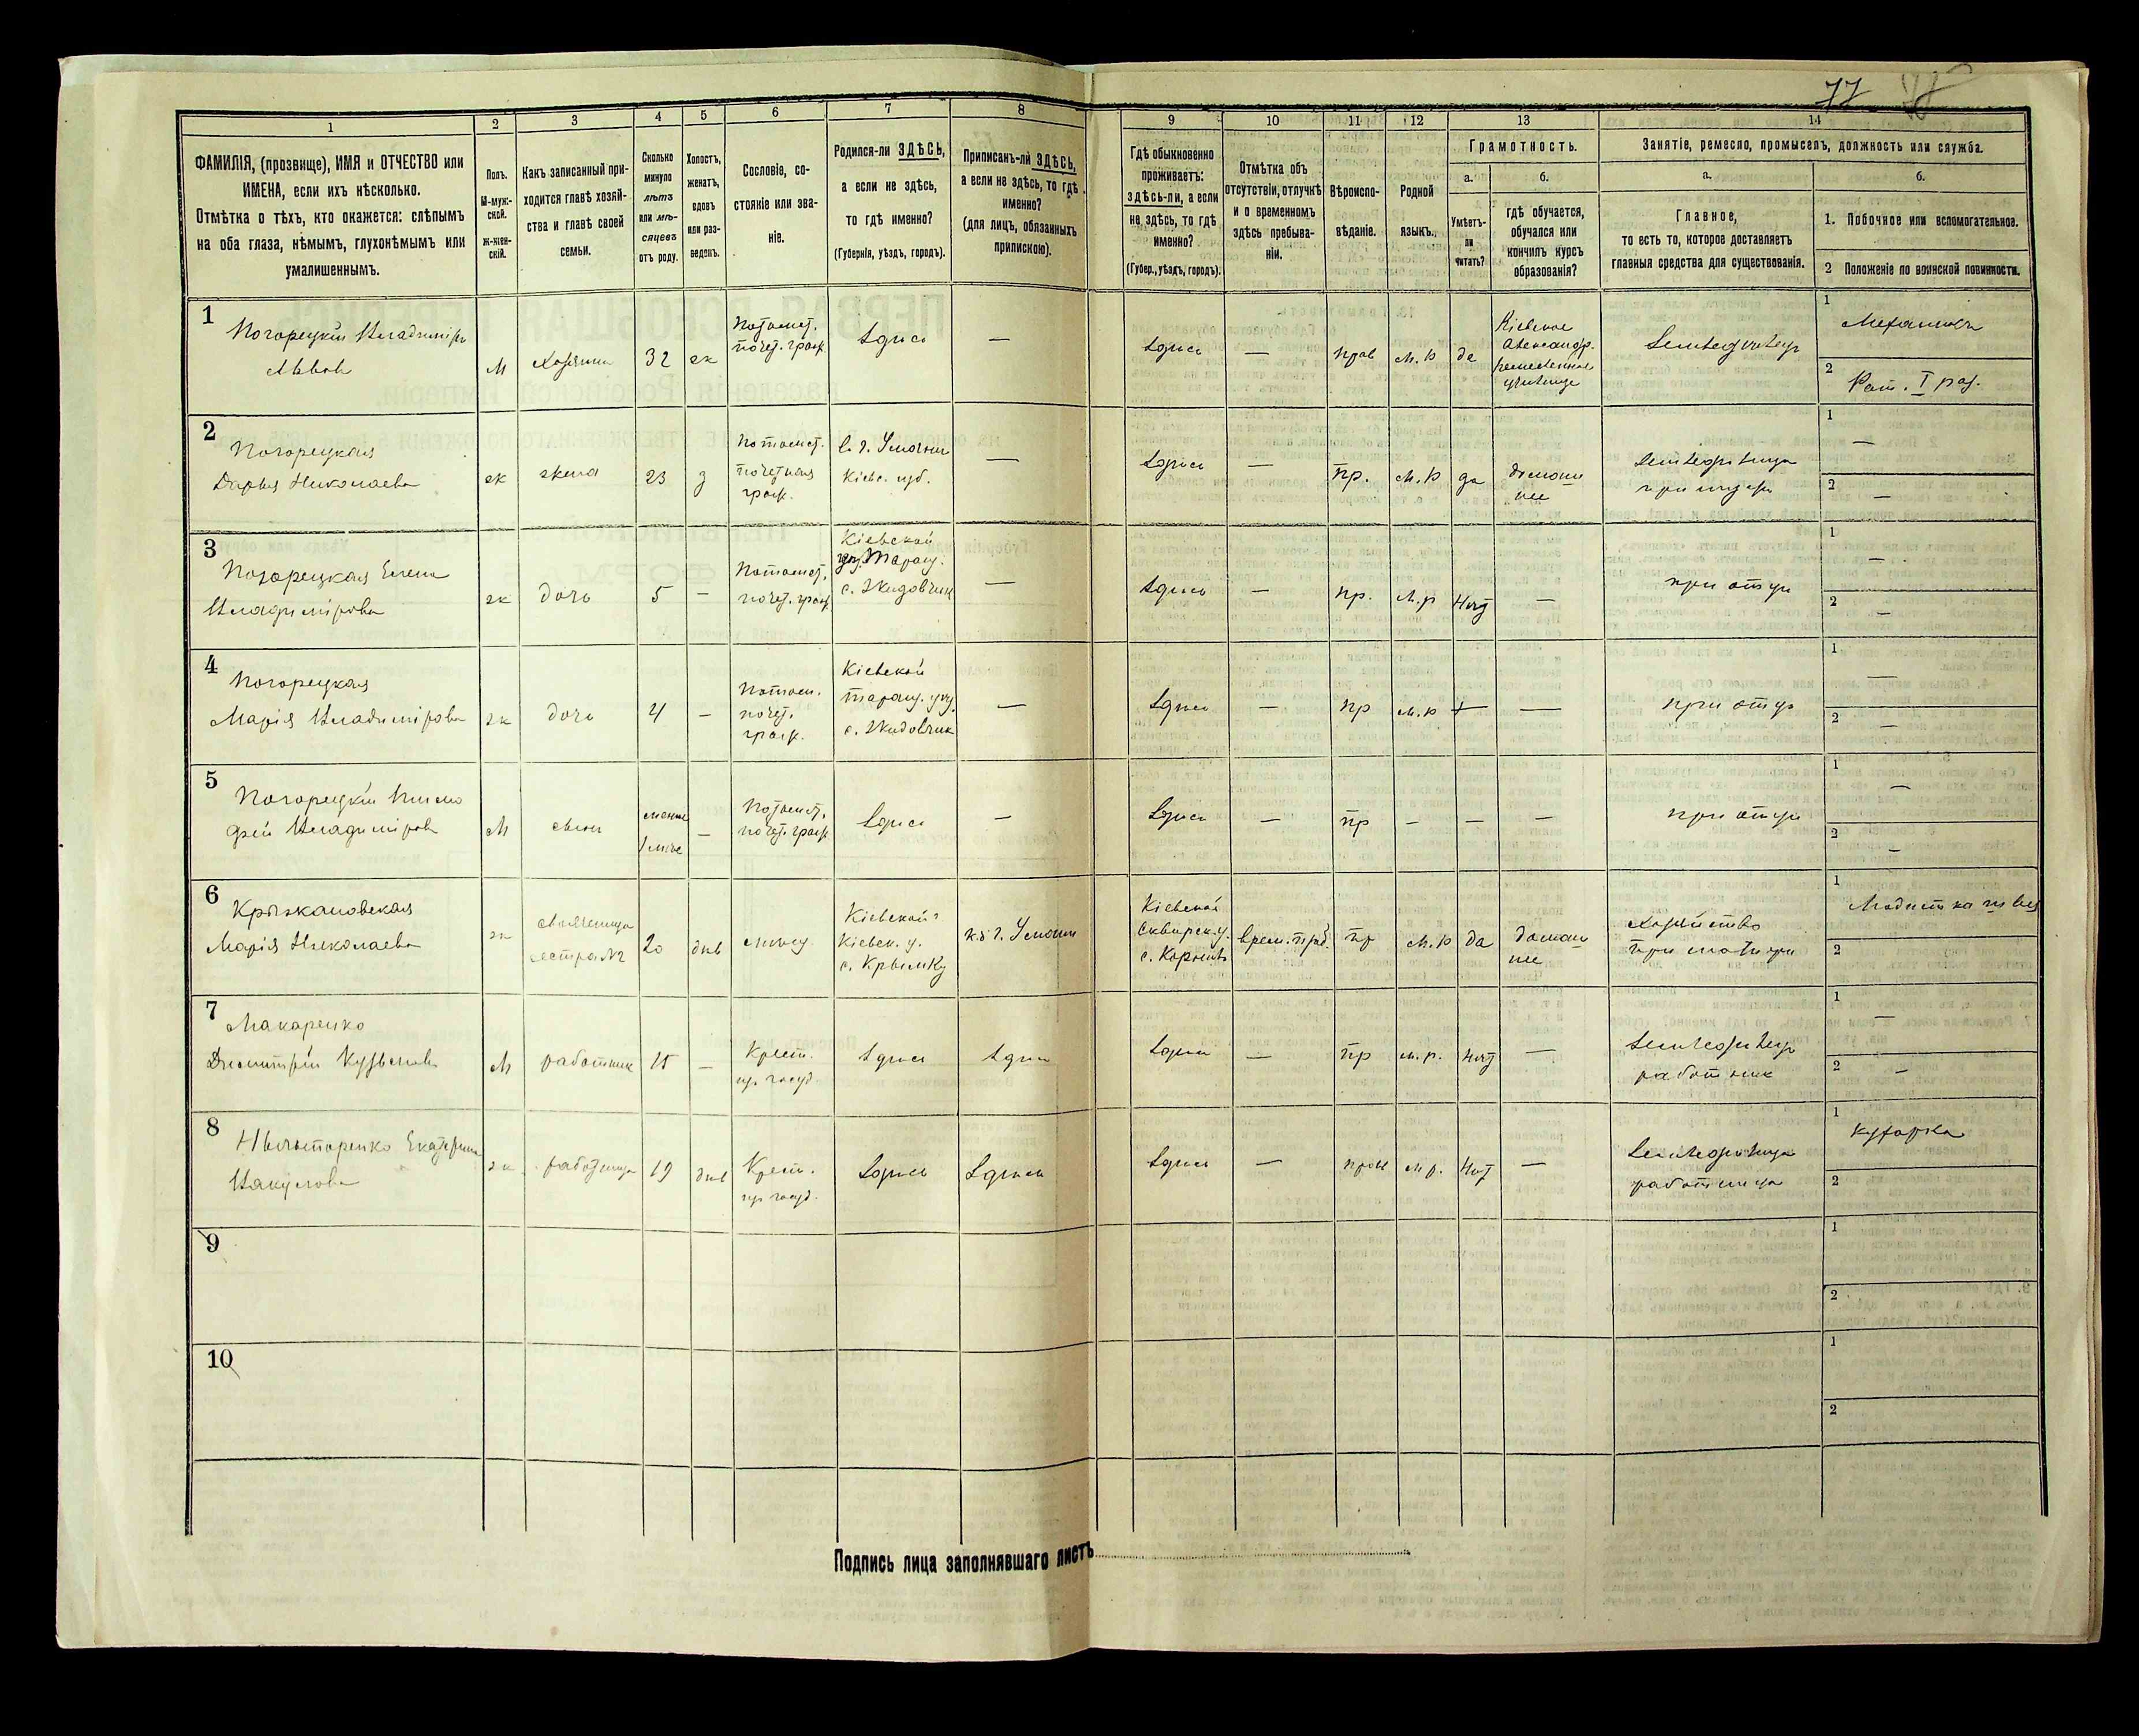 77
1 2 3 4 5 6 7 8 9 10 11 12 13 14
ФАМИЛІЯ, (прозвище), ИМЯ и ОТЧЕСТВО или
ИМЕНА, если ихъ нѣсколько.
Отмѣтка о тѣхъ, кто окажется: слѣпымъ
на оба глаза, нѣмымъ, глухонѣмымъ или
умалишеннымъ.
Полъ.
М-муж-
ской.
Ж-жен-
скій.
Какъ записанный при-
ходится главѣ хозяй-
ства и главѣ своей
семьи.
Сколько
минуло
лѣтъ
или мѣ-
сяцевъ
отъ роду.
Холостъ,
женатъ,
вдовъ
или раз-
веденъ.
Сословіе, со-
стояніе или зва-
ніе.
Родился-ли ЗДѢСЬ,
а если не здѣсь,
то гдѣ именно?
(Губернія, уѣздъ, городъ).
Приписанъ-ли ЗДѢСЬ,
а если не здѣсь, то гдѣ
именно?
(для лицъ, обязанныхъ
припискою).
Гдѣ обыкновенно
проживаетъ:
здѣсь-ли, а если
не здѣсь, то гдѣ
именно?
(Губер., уѣздъ, городъ).
Отмѣтка объ
отсутствіи, отлучкѣ
и о временномъ
здѣсь пребыва-
ніи.
Вѣроиспо-
вѣданіе.
Родной
языкъ.
Грамотность.
а.
Умѣетъ-
ли
читать?
б.
гдѣ обучается,
обучался или
кончилъ курсъ
образованія?
Занятіе, ремесло, промыселъ, должность или служба.
а.
Главное,
то есть то, которое доставляетъ
главныя средства для существованія.
б.
1. Побочное или вспомогательное.
2 Положеніе по воинской повинности.
1
Погорецкій Владиміръ
Львовъ
М
Хозяинъ
32
ж
Потомст.
почет. граж.
Здѣсь
—
Здѣсь
—
прав
м.р
да
Кіевское
Александр.
ремесленное
училище
Землевладѣлецъ
1
2
Рат. I раз.
2
Погорецкая
Дарья Николаева
ж
жена
23
з
Потомст.
почетная
граж.
в г. Умани
Кіевс. губ.
—
Здѣсь
—
пр.
м.р
да
домаш
нее
1 —
2 —
3
Погорецкая Елена
Владимірова
ж
дочь
5
—
Потомст.
почет. граж.
Кіевской
Таращ.
с. Жидовчик
—
Здѣсь
—
пр.
м.р
нѣт
—
при отцѣ
1 —
2 —
4
Погорецкая
Марія Владимірова
ж
дочь
4
—
Потом.
почет.
граж.
Кіевской
Таращ. уѣз.
с. Жидовчик
—
Здѣсь
—
пр
м.р
—
при отцѣ
1 —
2 —
5
Погорецкій Тимо
фей Владиміровъ
М
сынъ
менѣе
1 мѣс
—
Потомст.
почет. граж.
Здѣсь
—
Здѣсь
—
пр
—
—
—
при отцѣ
1 —
2 —
6
Крыжановская
Марія Николаева
ж
свояченица
сестра №2
20
дѣв
Кіевской
Кіевск. у.
с. Крымку
къ г. Умани
Кіевской
Сквирск. у.
врем. преб.
пр
м.р
да
домаш
нее
Хозяйство
при матери
1
Модистка
2
7
Макаренко
Дмитрій Кузьмовъ
М
работник
15
—
Крест.
из госуд
Здѣсь
Здѣсь
Здѣсь
—
пр
м.р.
нѣт
—
работник
1 —
2 —
8
Екатерина
Вакулова
ж
работница
19
дѣв
Крест.
из госуд.
Здѣсь
Здѣсь
Здѣсь
—
прав
м.р.
нѣт
—
работница
1
кухарка
2
9
1
2
10
1
2
Подпись лица заполнявшаго листъ